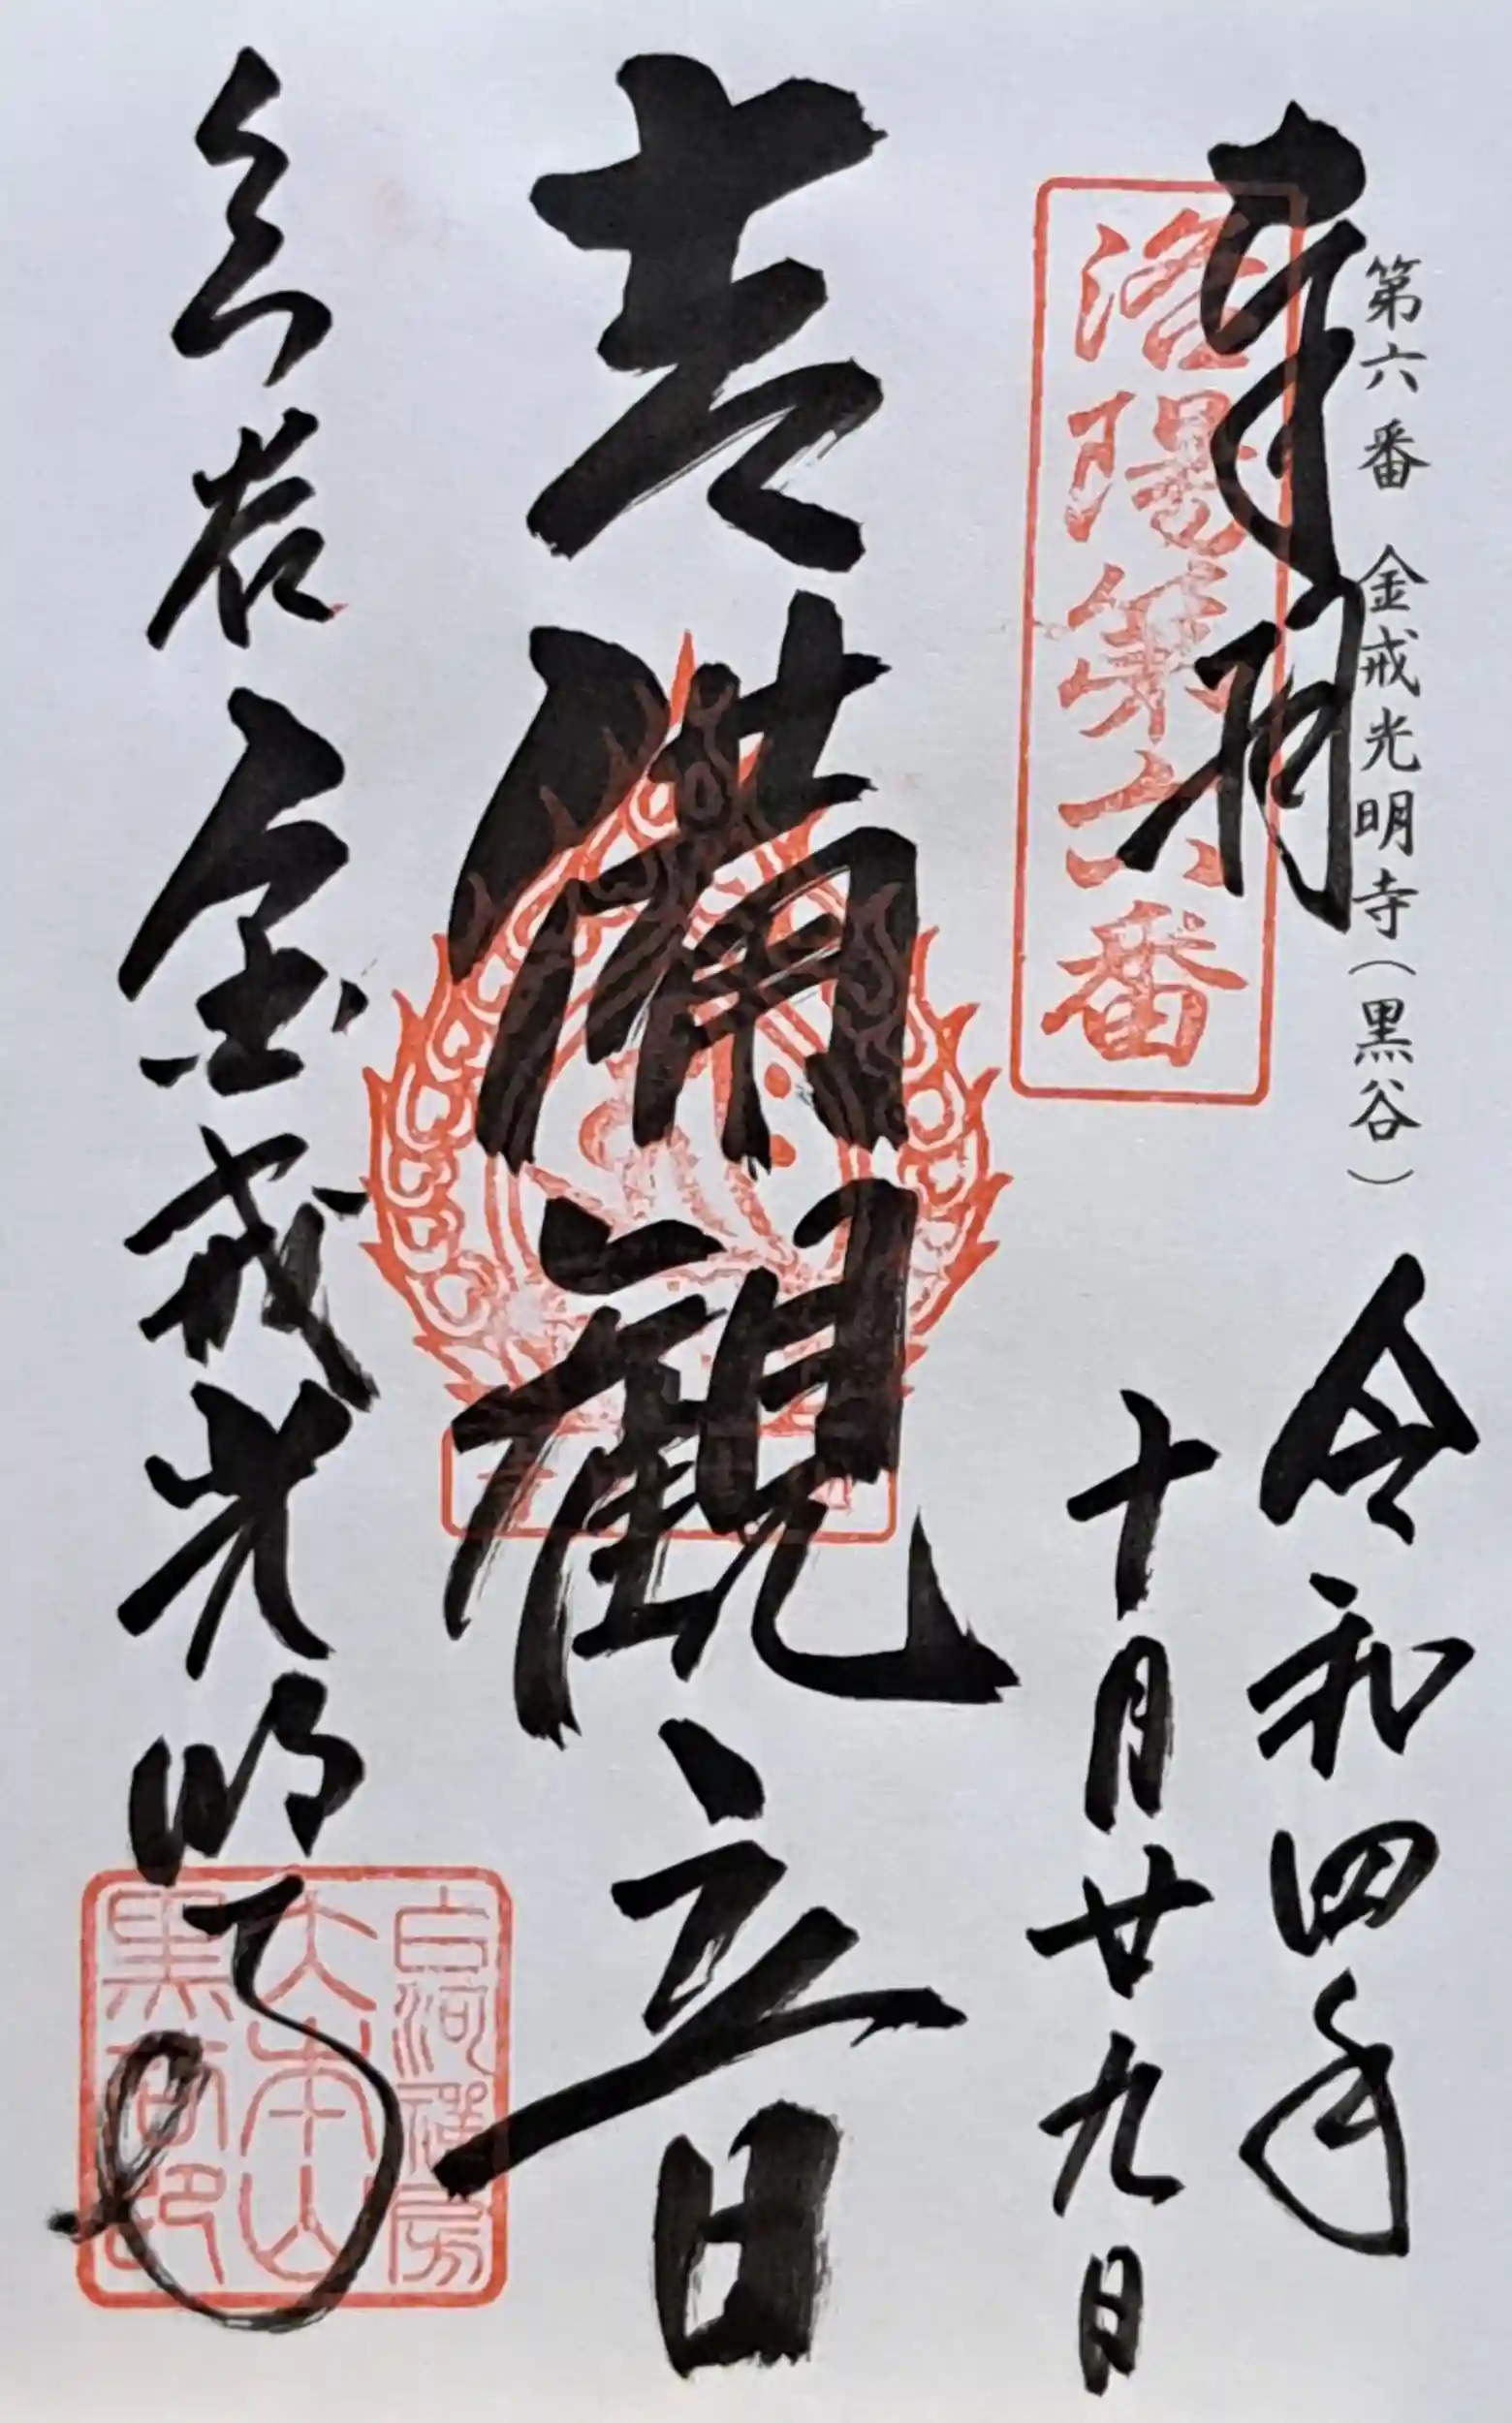 第六番 金戒光明寺（黒谷）
奉拝
令和四年
十月廿九日
洛陽第六番
吉備観音
会谷 金戒光明寺
白河禅房
大本山
黒谷印